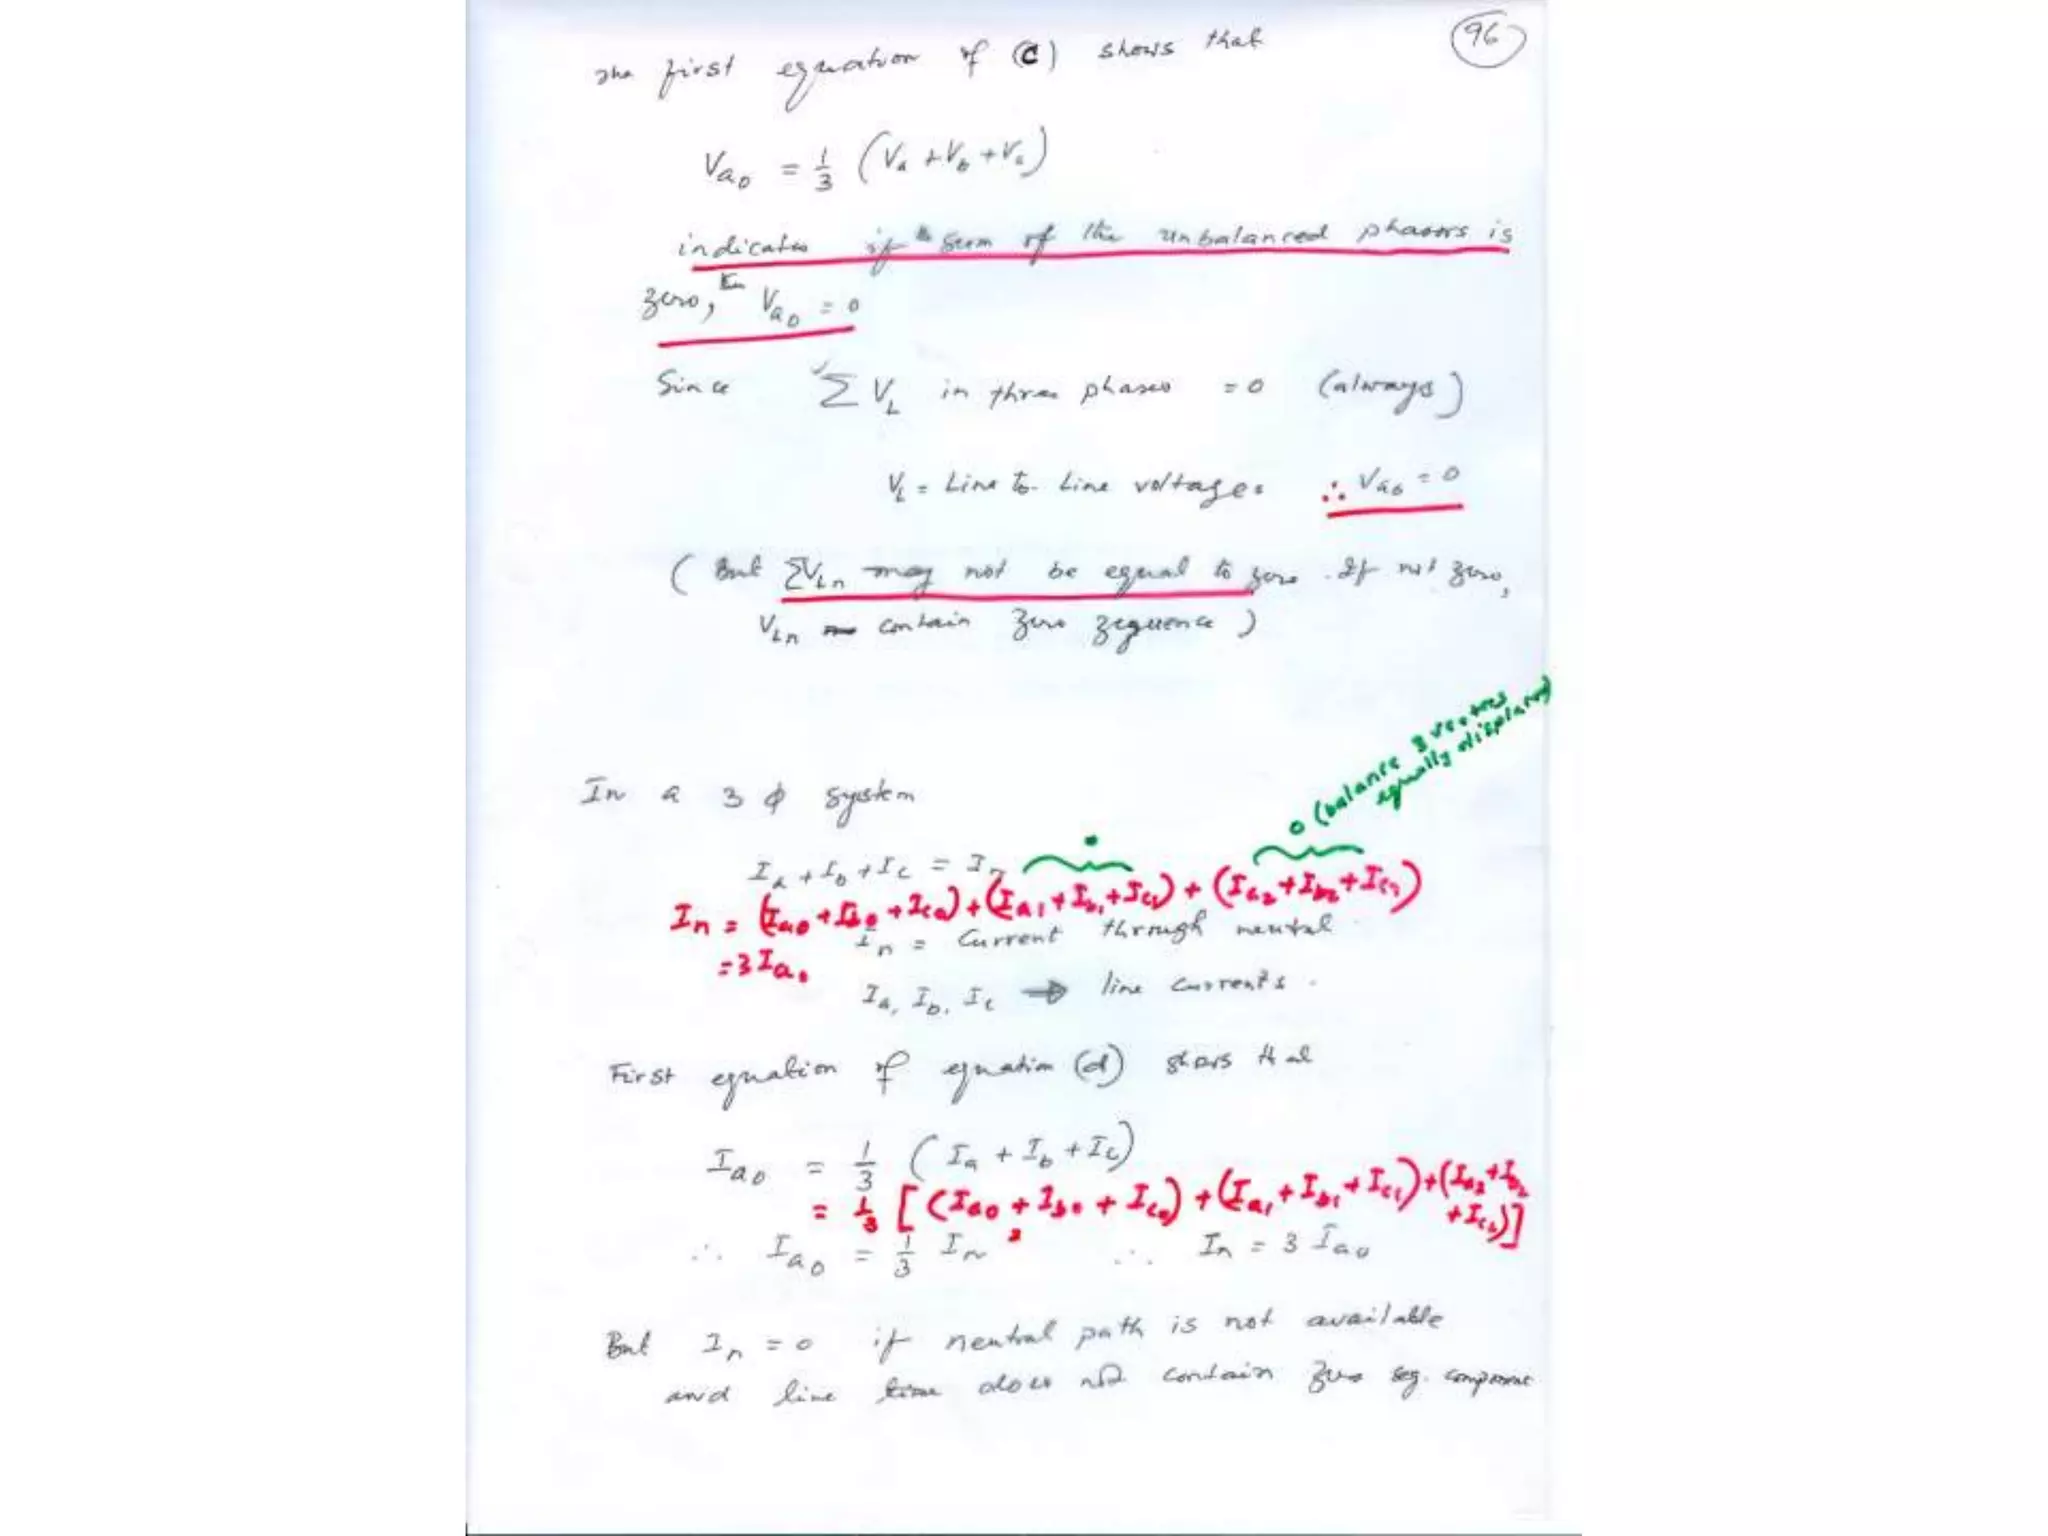 96
The first equation of (C) shows that
Va0 = 1/3 (Va + Vb + Vc)
indicates if sum of the unbalanced phasors is
zero, Va0 = 0
Since ∑ VL in three phases = 0 (always)
VL = Line to Line voltages ∴ Va0 = 0
( But ∑VLn may not be equal to zero. If not zero,
VLn contain zero zequence )
In a 3 φ system
0 (balance 3 vectors
equally displaced)
Ia + Ib + Ic = In
In = (Ia0 + Ib0 + Ic0) + (Ia1 + Ib1 + Ic1) + (Ia2 + Ib2 + Ic2)
In = Current through neutral
= 3 Ia0
Ia, Ib, Ic → line currents.
First equation of equation (d) shows that
Ia0 = 1/3 (Ia + Ib + Ic)
= 1/3 [(Ia0 + Ib0 + Ic0) + (Ia1 + Ib1 + Ic1) + (Ia2 + Ib2
+ Ic2)]
∴ Ia0 = 1/3 In ∴ In = 3 Ia0
But In = 0 if neutral path is not available
and line time does not contain zero seq. component